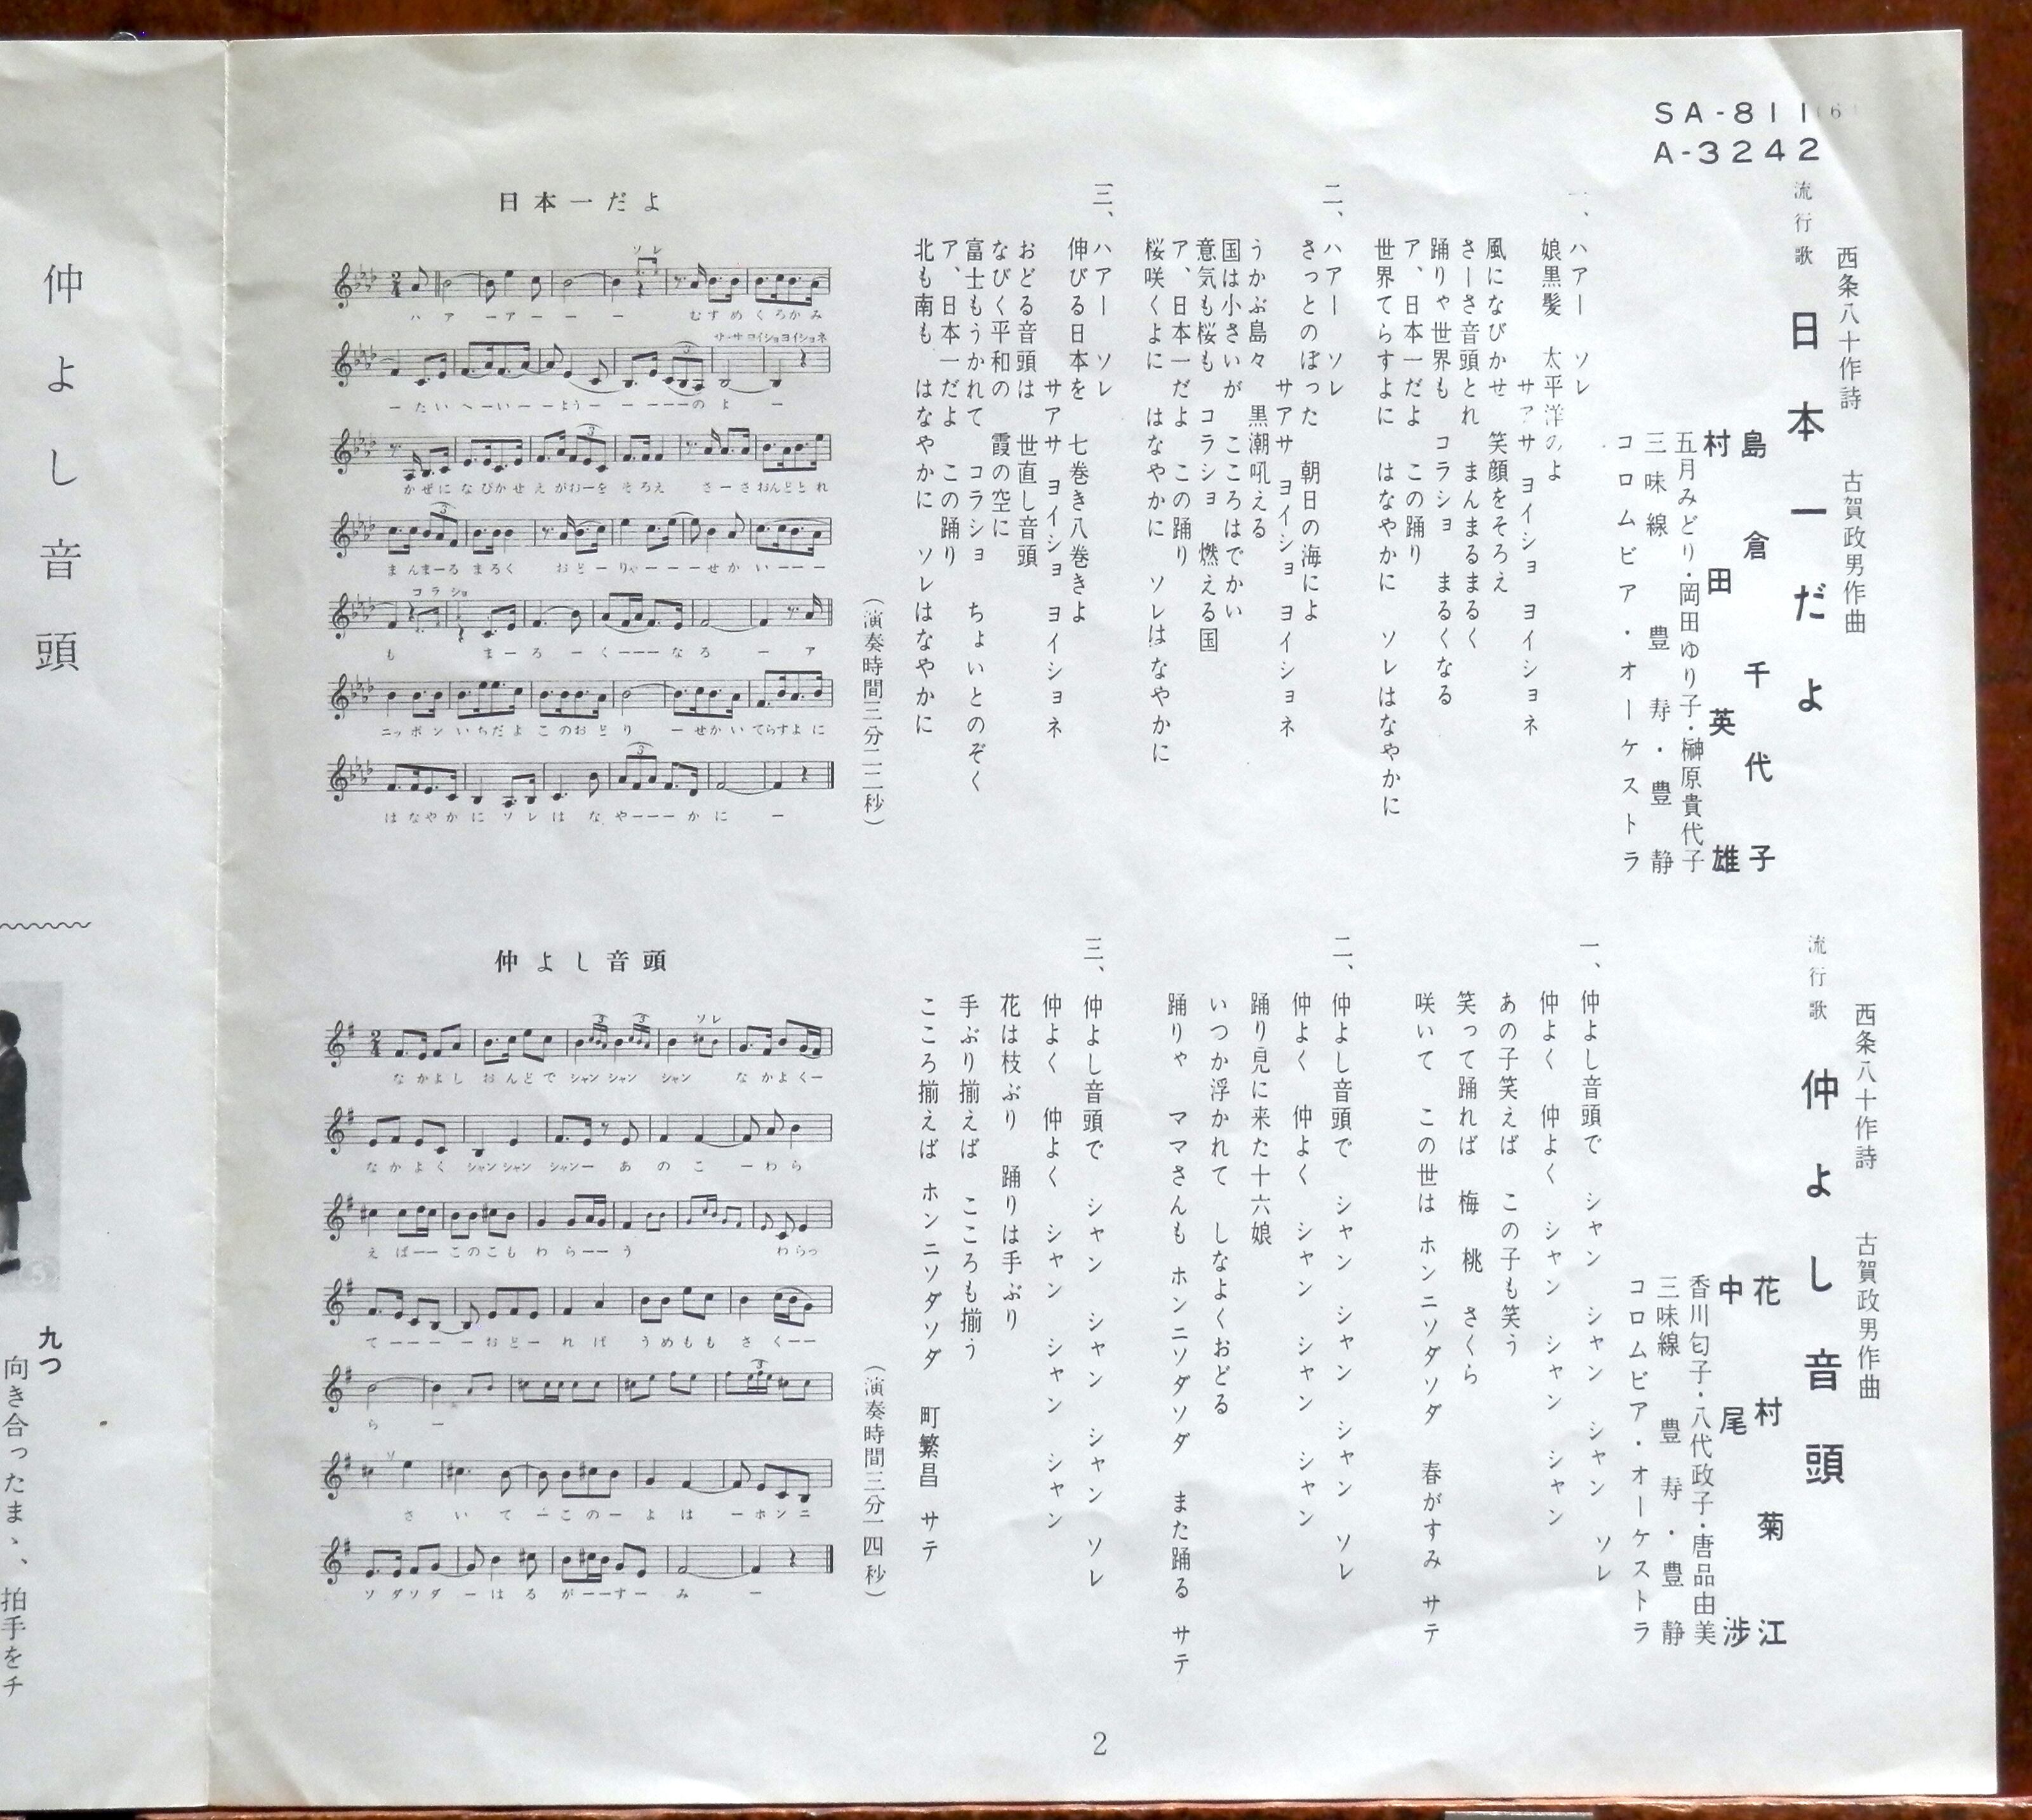 SA-811
A-3242
西条八十作詩　古賀政男作曲
流行歌　日本一だよ
島倉千代子
村田英雄
五月みどり・岡田ゆり子・榊原貴代子
三味線　豊寿・豊静
コロムビア・オーケストラ
一、
ハアー　ソレ
娘黒髪　太平洋のよ
サアサ　ヨイショ　ヨイショネ
風になびかせ　笑顔をそろえ
さーさ音頭とれ　まんまるまるく
踊りゃ世界も　コラショ　まるくなる
ア、日本一だよ　この踊り
世界てらすよに　はなやかに　ソレはなやかに
二、
ハアー　ソレ
さっとのぼった　朝日の海によ
サアサ　ヨイショ　ヨイショネ
うかぶ島々　黒潮吼える
国は小さいが　こころはでかい
意気も桜も　コラショ　燃える国
ア、日本一だよ　この踊り
桜咲くよに　はなやかに　ソレはなやかに
三、
ハアー　ソレ
伸びる日本を　七巻き八巻きよ
サアサ　ヨイショ　ヨイショネ
おどる音頭は　世直し音頭
なびく平和の　霞の空に
富士もうかれて　コラショ　ちょいとのぞく
ア、日本一だよ　この踊り
北も南も　はなやかに　ソレはなやかに
（演奏時間三分二二秒）
日本一だよ
ソレ
ハアーアーーー　むすめくろかみ
サーサヨイショヨイショネ
ーたいへーいーーようーーーーーのよー
かぜになびかせえがおーをそろえ　さーさおんどとれ
まんまーるまるく　おどーりゃーーーせかいーーー
コラショ
も　まーろーくーーーなるーア
ニッポンいちだよこのおどりーせかいてらすよに
はなやかにソレはなやーーーかにー
西条八十作詩　古賀政男作曲
流行歌　仲よし音頭
花村菊江
中尾渉
香川匂子・八代政子・唐品由美
三味線　豊寿・豊静
コロムビア・オーケストラ
一、
仲よし音頭で　シャン　シャン　シャン　ソレ
仲よく　仲よく　シャン　シャン　シャン
あの子笑えば　この子も笑う
笑って踊れば　梅　桃　さくら
咲いて　この世は　ホンニソダソダ　春がすみ　サテ
二、
仲よし音頭で　シャン　シャン　シャン　ソレ
仲よく　仲よく　シャン　シャン　シャン
踊り見に来た十六娘
いつか浮かれて　しなよくおどる
踊りゃ　ママさんも　ホンニソダソダ　また踊る　サテ
三、
仲よし音頭で　シャン　シャン　シャン　ソレ
仲よく　仲よく　シャン　シャン　シャン
花は枝ぶり　踊りは手ぶり
手ぶり揃えば　こころも揃う
こころ揃えば　ホンニソダソダ　町繁昌　サテ
（演奏時間三分一四秒）
仲よし音頭
ソレ
なかよしおんどでシャンシャンシャン　なかよくー
なかよくシャンシャンシャンーあのこーわら
えばーーこのこもわらーーう　わらっ
てーーーーおどーればうめももさくーー
らー
さいてーこのーよはーホンニ
ソダソダーはるがーーすーみー
2
仲よし音頭
九つ
向き合ったまゝ、拍手をチ